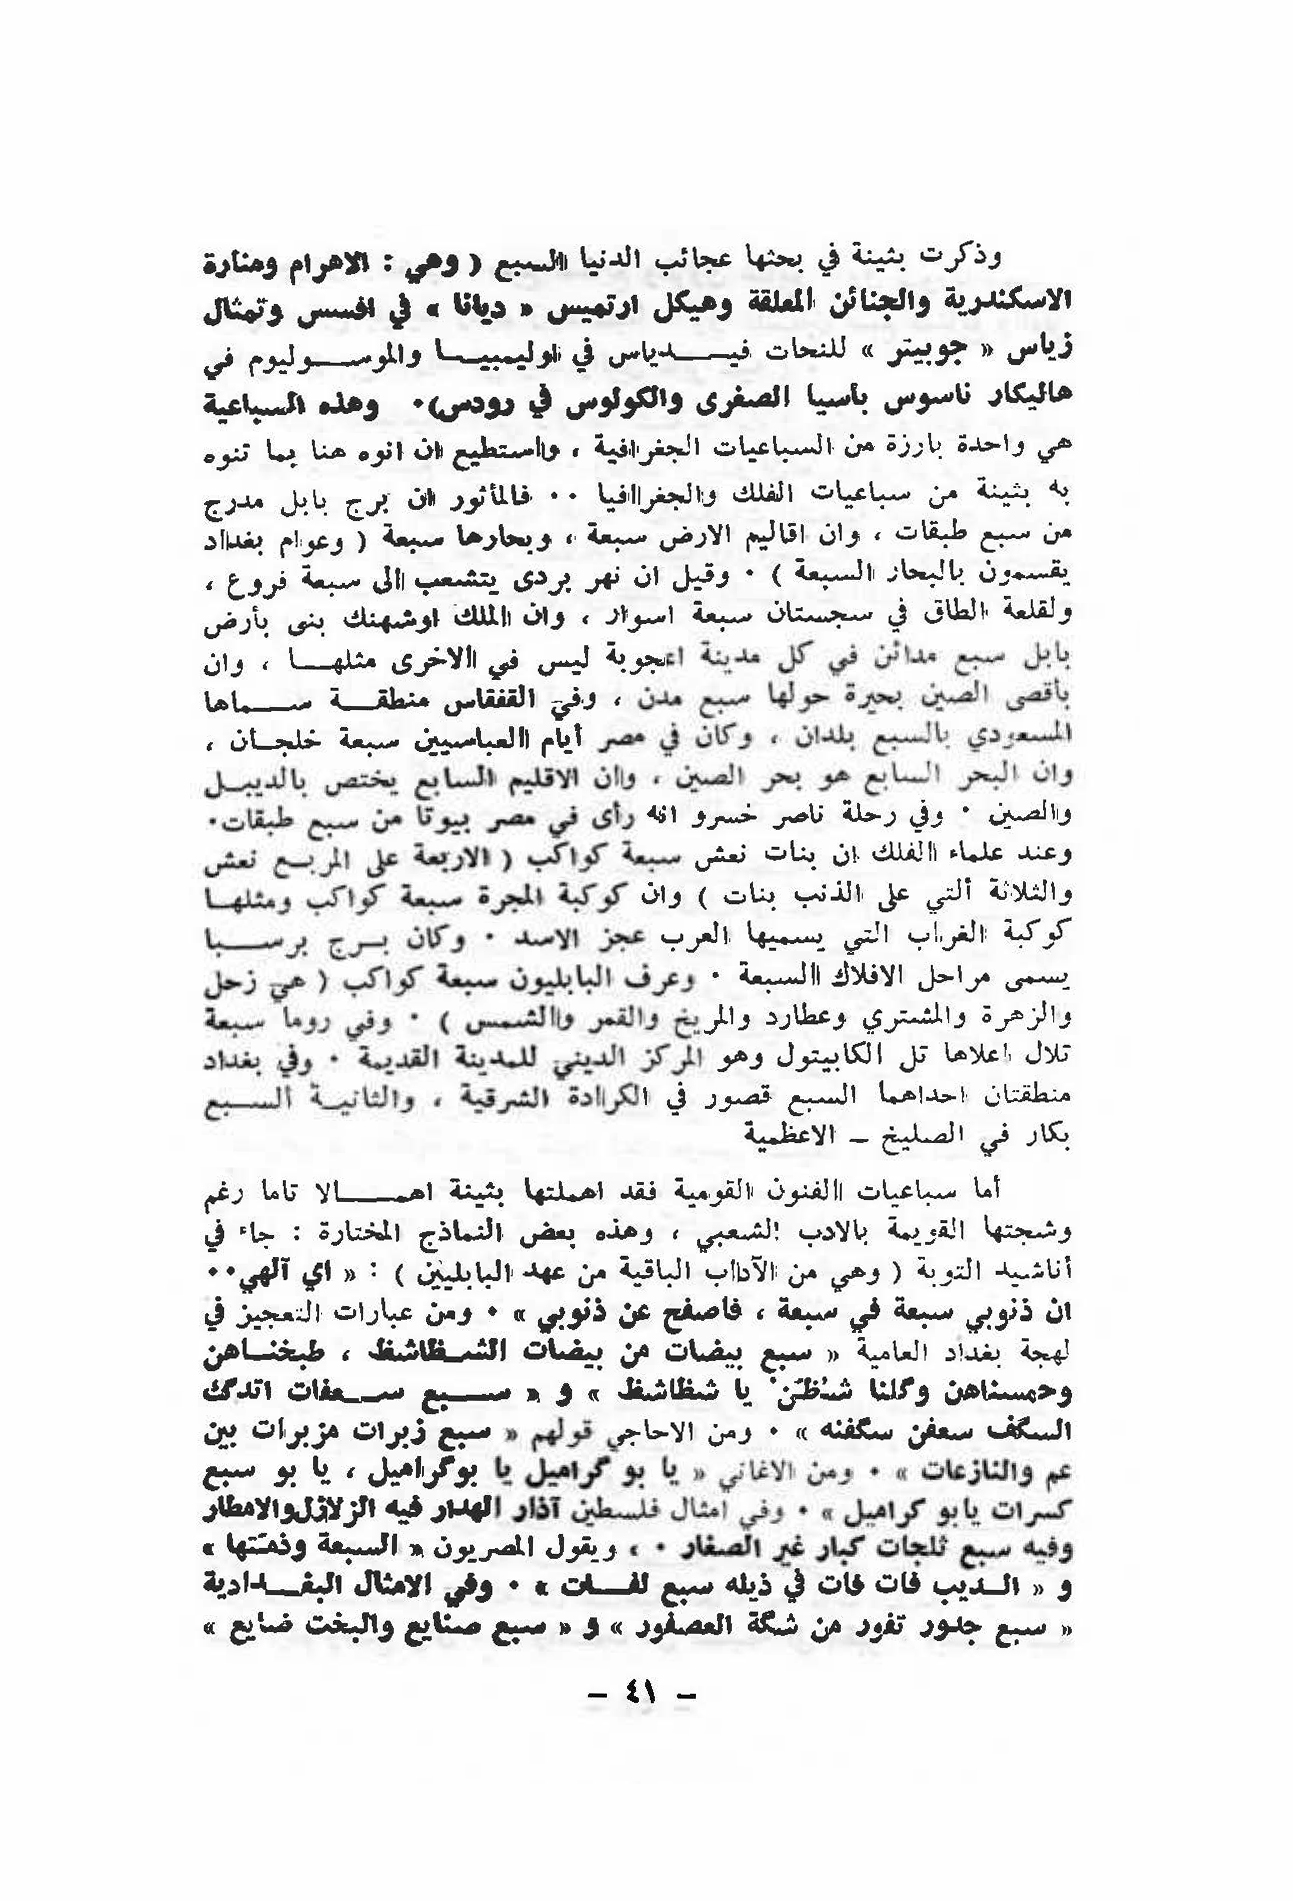 وذكرت بثينة في بحثها عجائب الدنيا السبع ( وهي : الاهرام ومنارة
الاسكندرية والجنائن المعلقة وهيكل ارتميس « ديانا » في افسس وتمثال
زياس « جوبيتر » للنحات فيدياس في اوليمبيا والموسوليوم في
هاليكار ناسوس بآسيا الصغرى والكولوس في رودس)٠ وهذه السباعية
هي واحدة بارزة من السباعيات الجغرافية ، واستطيع ان انوه هنا بما تنوه
به بثينة من سباعيات الفلك والجغرافيا ٠٠ فالمأثور ان برج بابل مدرج
من سبع طبقات ، وان اقاليم الارض سبعة ، وبحارها سبعة ( وعوام بغداد
يقسمون بالبحار السبعة ) ٠ وقيل ان نهر بردى يتشعب الى سبعة فروع ،
ولقلعة الطاق في سجستان سبعة اسوار ، وان الملك اوشهنك بنى بأرض
بابل سبع مدائن في كل مدينة اعجوبة ليس في الاخرى مثلها ، وان
بأقصى الصين بحيرة حولها سبع مدن ، وفي القفقاس منطقة سماها
المسعودي بالسبع بلدان ، وكان في مصر أيام العباسيين سبعة خلجان ،
وان البحر السابع هو بحر الصين ، وان الاقليم السابع يختص بالديبل
والصين ٠ وفي رحلة ناصر خسرو انه رأى في مصر بيوتا من سبع طبقات٠
وعند علماء الفلك ان بنات نعش سبعة كواكب ( الاربعة على المربع نعش
والثلاثة ألتي على الذنب بنات ) وان كوكبة المجرة سبعة كواكب ومثلها
كوكبة الغراب التي يسميها العرب عجز الاسد ٠ وكان برج برسبا
يسمى مراحل الافلاك السبعة ٠ وعرف البابليون سبعة كواكب ( هي زحل
والزهرة والمشتري وعطارد والمريخ والقمر والشمس ) ٠ وفي روما سبعة
تلال اعلاها تل الكابيتول وهو المركز الديني للمدينة القديمة ٠ وفي بغداد
منطقتان احداهما السبع قصور في الكرادة الشرقية ، والثانية ألسبع
بكار في الصليخ – الاعظمية
أما سباعيات الفنون القومية فقد اهملتها بثينة اهمالا تاما رغم
وشجتها القويمة بالادب الشعبي ، وهذه بعض النماذج المختارة : جاء في
أناشيد التوبة ( وهي من الآداب الباقية من عهد البابليين ) : « اي آلهي٠٠
ان ذنوبي سبعة في سبعة ، فاصفح عن ذنوبي » ٠ ومن عبارات التعجيز في
لهجة بغداد العامية « سبع بيضات من بيضات الشظاشظ ، طبخناهن
وحمسناهن وگلنا شنظن يا شظاشظ » و « سبع سعفات اتدگك
السگف سعفن سگفنه » ٠ ومن الاحاجي قولهم « سبع زبرات مزبرات بين
عم والنازعات » ٠ ومن الاغاني « يا بو گراميل يا بوگراميل ، يا بو سبع
كسرات يابو كراميل » ٠ وفي امثال فلسطين آذار الهدار فيه الزلازل والامطار
وفيه سبع ثلجات كبار غير الصغار ٠ ، ويقول المصريون « السبعة وذمتها »
و « الديب فات فات في ذيله سبع لفات » ٠ وفي الامثال البغدادية
« سبع جدور تفور من شگة العصفور » و « سبع صنايع والبخت ضايع »
– ٤١ –